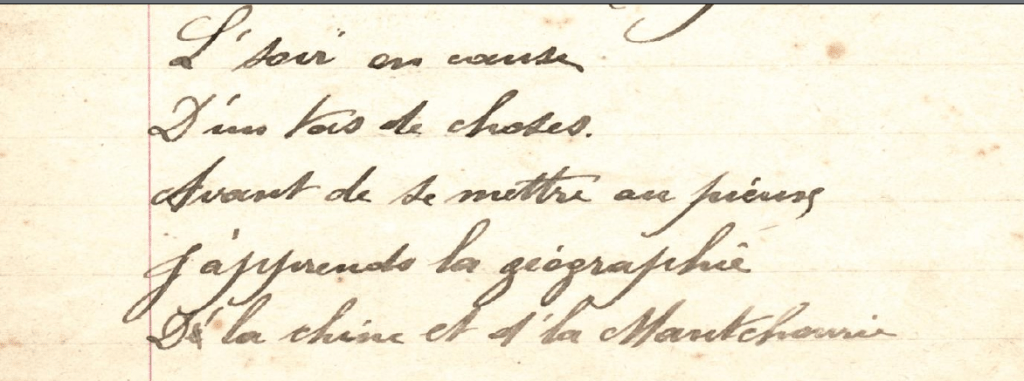 L' soir on cause
D'un tas de choses.
Avant de se mettre au pieux,
J'apprends la géographie
D' la chine et d' la Mantchourie